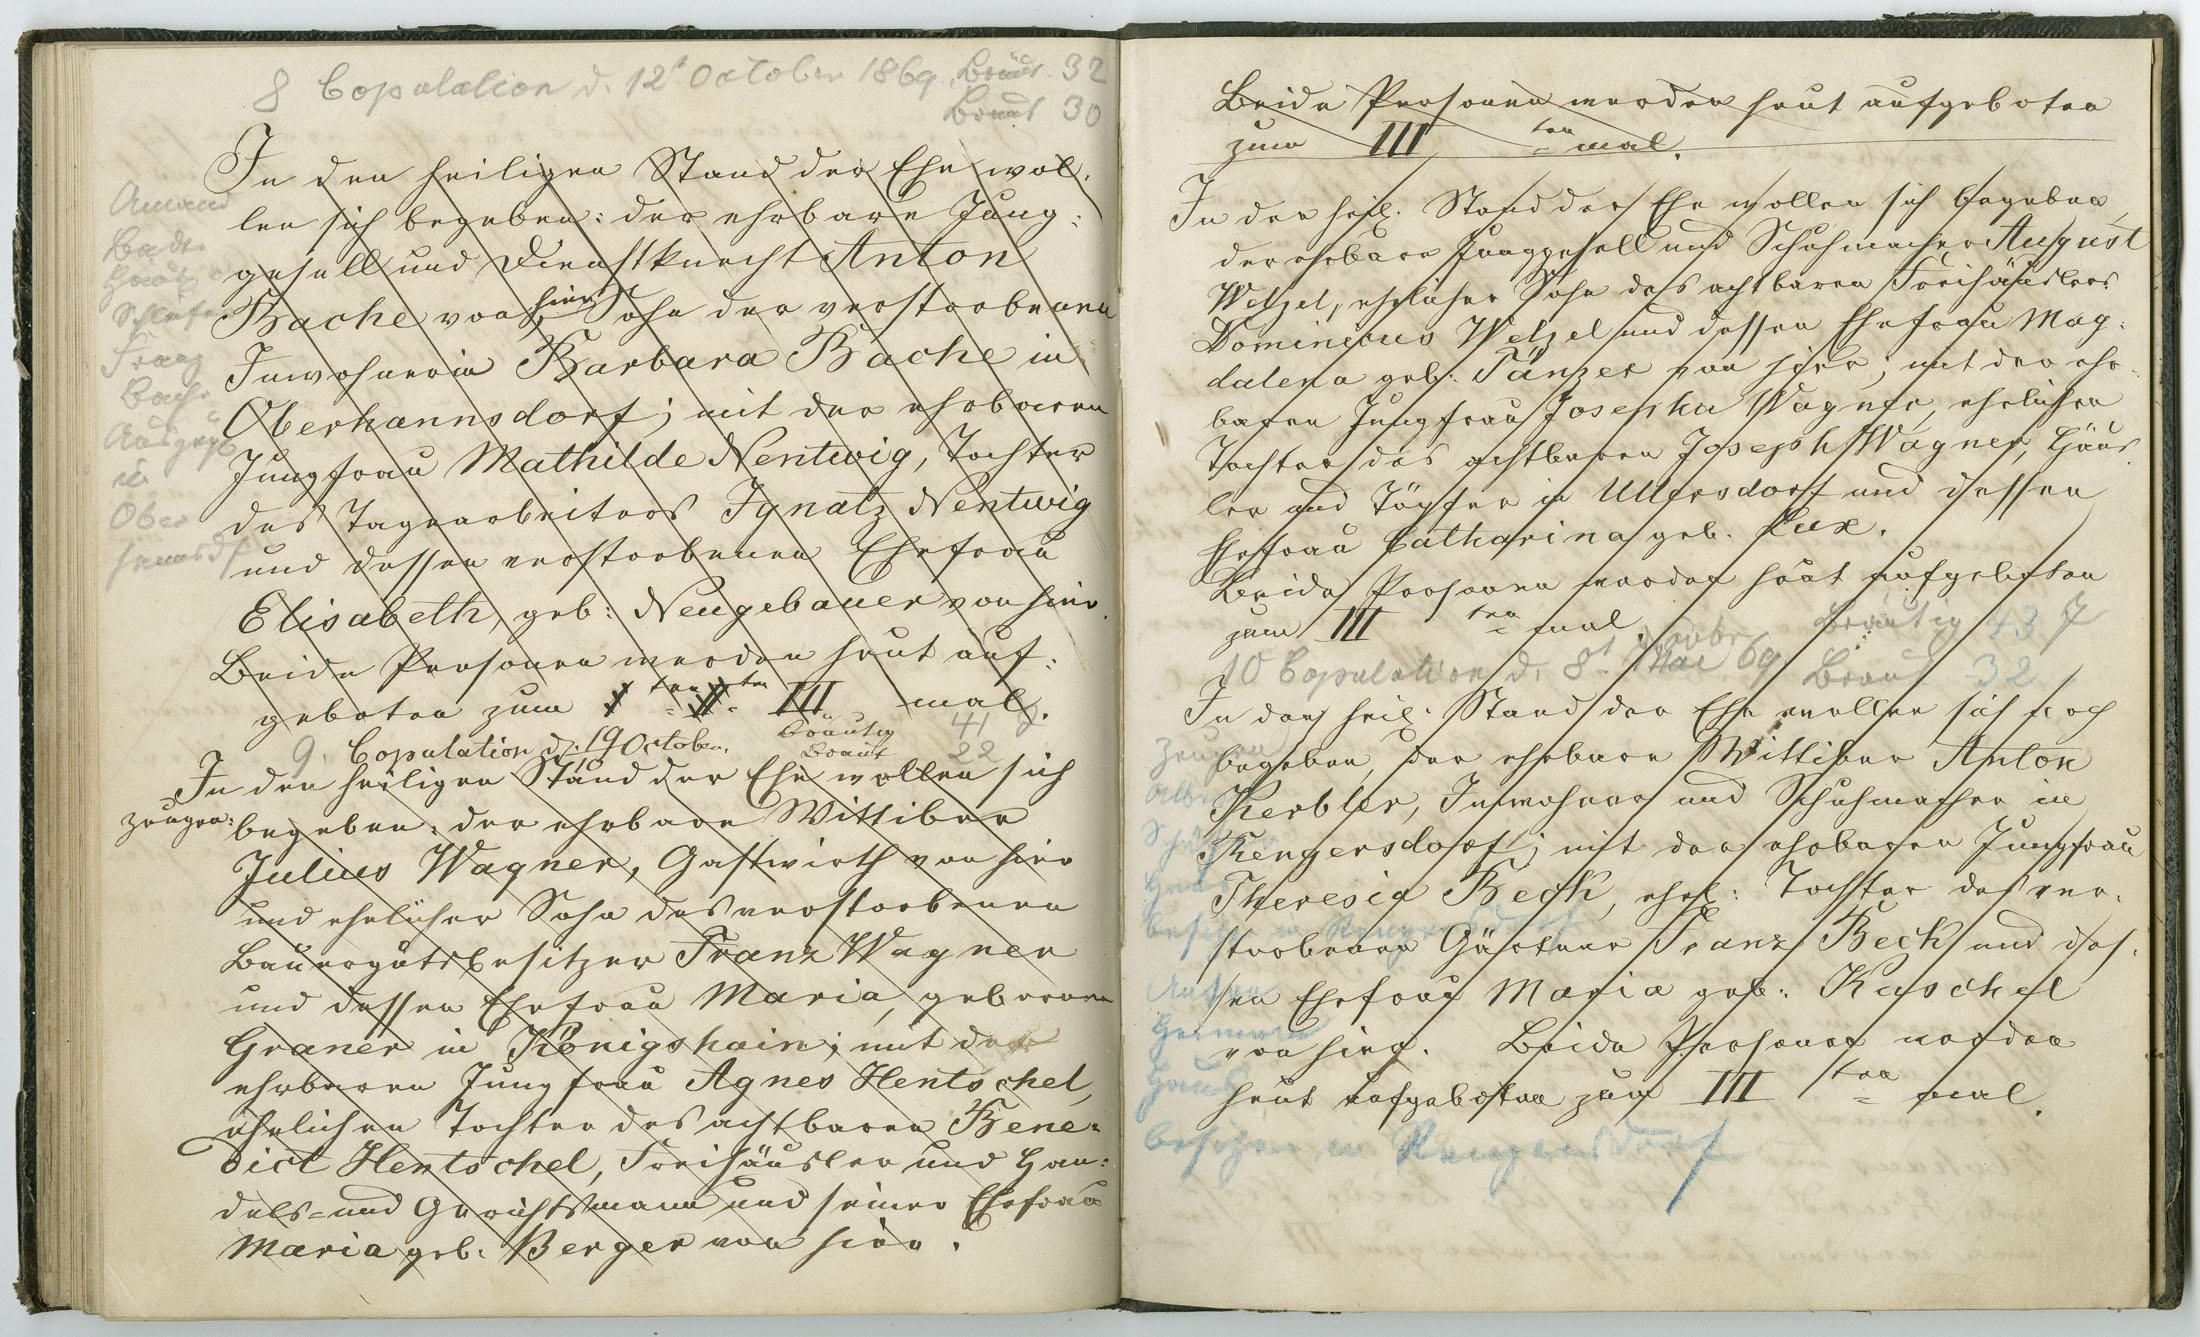 8 Copulation d. 12t October 1869. Bräut. 32
Braut 30
In den heiligen Stand der Ehe wol-
len sich begeben: der ehrbare Jung-
gesell und Dienstknecht Anton
Bache von hier, Sohn der verstorbenen
Inwohnerin Barbara Bache in
Oberhannsdorf; mit der ehrbaren
Jungfrau Mathilde Nentwig, Tochter
des Tagearbeiters Ignatz Nentwig
und dessen verstorbenen Ehefrau
Elisabeth, geb: Neugebauer von hier.
Beide Personen werden heut auf-
geboten zum I ten II ten III mal.
Amand
Franz
Bache
Auszügl
in
Ober
hannsdf
9. Copulation d. 19 October. Bräutig 41 J
Braut 22
In den heiligen Stand der Ehe wollen sich
Zeugen: begeben: der ehrbare Wittiber
Julius Wagner, Gastwirth von hier
und ehelicher Sohn des verstorbenen
Bauergutsbesitzer Franz Wagner
und dessen Ehefrau Maria, geborenen
Graner in Königshain; mit der
ehrbaren Jungfrau Agnes Hentschel,
ehelichen Tochter des achtbaren Bene-
dict Hentschel, Freihäusler und Han-
dels- und Gerichtsmann und seiner Ehefrau
Maria geb: Berger von hier.
Beide Personen werden heut aufgeboten
zum III ten mal.
In den heil. Stand der Ehe wollen sich begeben,
der ehrbare Junggesell und Schuhmacher August
Welzel, ehelicher Sohn des achtbaren Freihäuslers
Dominicus Welzel und dessen Ehefrau Mag-
dalena geb: Tänzer von hier; mit der ehr-
baren Jungfrau Josepha Wagner, ehelichen
Tochter des achtbaren Joseph Wagner, Häus-
ler und Töpfer in Ullersdorf und dessen
Ehefrau Catharina geb. Lux.
Beide Personen werden heut aufgeboten
zum III ten mal.
Bräutig 43 J
10 Copulation d. 8t Novbr 69. Braut 32
In den heil. Stand der Ehe wollen sich noch
begeben, der ehrbare Wittiber Anton
Kerbler, Inwohner und Schuhmacher in
Rengersdorf; mit der ehrbaren Jungfrau
Theresia Beck, ehel: Tochter des ver-
storbenen Gärtner Franz Beck und des-
sen Ehefrau Maria geb: Kuschel
von hier. Beide Personen werden
heut aufgeboten zum III ten mal.
Zeugen
besitzer in Rengersdorf
Haus
besitzer in Rengersdorf